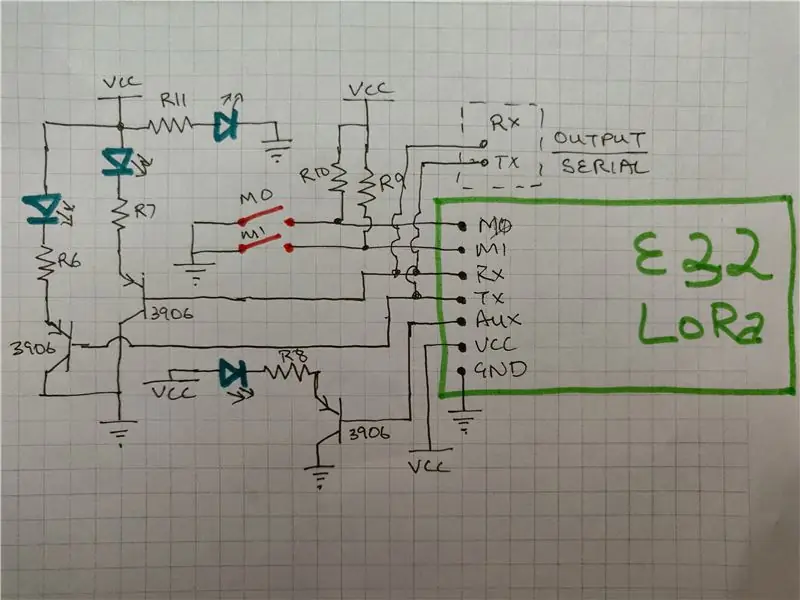 VCC
R11
VCC
Rx
TX
OUTPUT
SERIAL
R10
R9
R7
M0
M1
R6
3906
3906
R8
VCC
3906
VCC
MØ
M1
Rx
Tx
Aux
VCC
GND
E32
LoRa